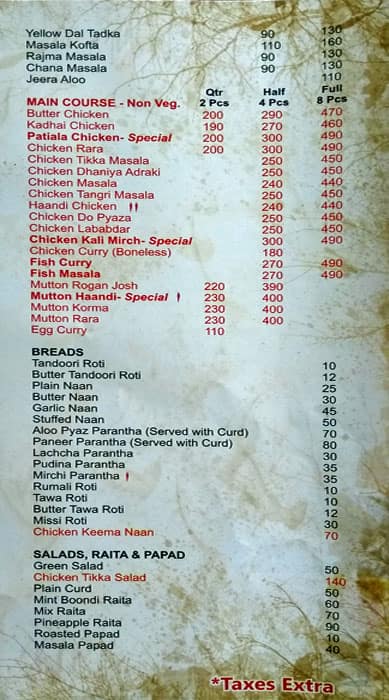 Yellow Dal Tadka 90 130
Masala Kofta 110 160
Rajma Masala 90 130
Chana Masala 90 130
Jeera Aloo 110
Qtr Half Full
MAIN COURSE - Non Veg. 2 Pcs 4 Pcs 8 Pcs
Butter Chicken 200 290 470
Kadhai Chicken 190 270 460
Patiala Chicken- Special 200 300 490
Chicken Rara 200 300 490
Chicken Tikka Masala 250 450
Chicken Dhaniya Adraki 250 450
Chicken Masala 240 440
Chicken Tangri Masala 250 450
Haandi Chicken 240 440
Chicken Do Pyaza 250 450
Chicken Lababdar 250 450
Chicken Kali Mirch- Special 300 490
Chicken Curry (Boneless) 180
Fish Curry 270 490
Fish Masala 270 490
Mutton Rogan Josh 220 390
Mutton Haandi- Special 230 400
Mutton Korma 230 400
Mutton Rara 230 400
Egg Curry 110
BREADS
Tandoori Roti 10
Butter Tandoori Roti 12
Plain Naan 25
Butter Naan 30
Garlic Naan 45
Stuffed Naan 50
Aloo Pyaz Parantha (Served with Curd) 70
Paneer Parantha (Served with Curd) 80
Lachcha Parantha 30
Pudina Parantha 35
Mirchi Parantha 35
Rumali Roti 10
Tawa Roti 10
Butter Tawa Roti 12
Missi Roti 30
Chicken Keema Naan 70
SALADS, RAITA & PAPAD
Green Salad 50
Chicken Tikka Salad 140
Plain Curd 50
Mint Boondi Raita 60
Mix Raita 70
Pineapple Raita 90
Roasted Papad 10
Masala Papad 40
*Taxes Extra